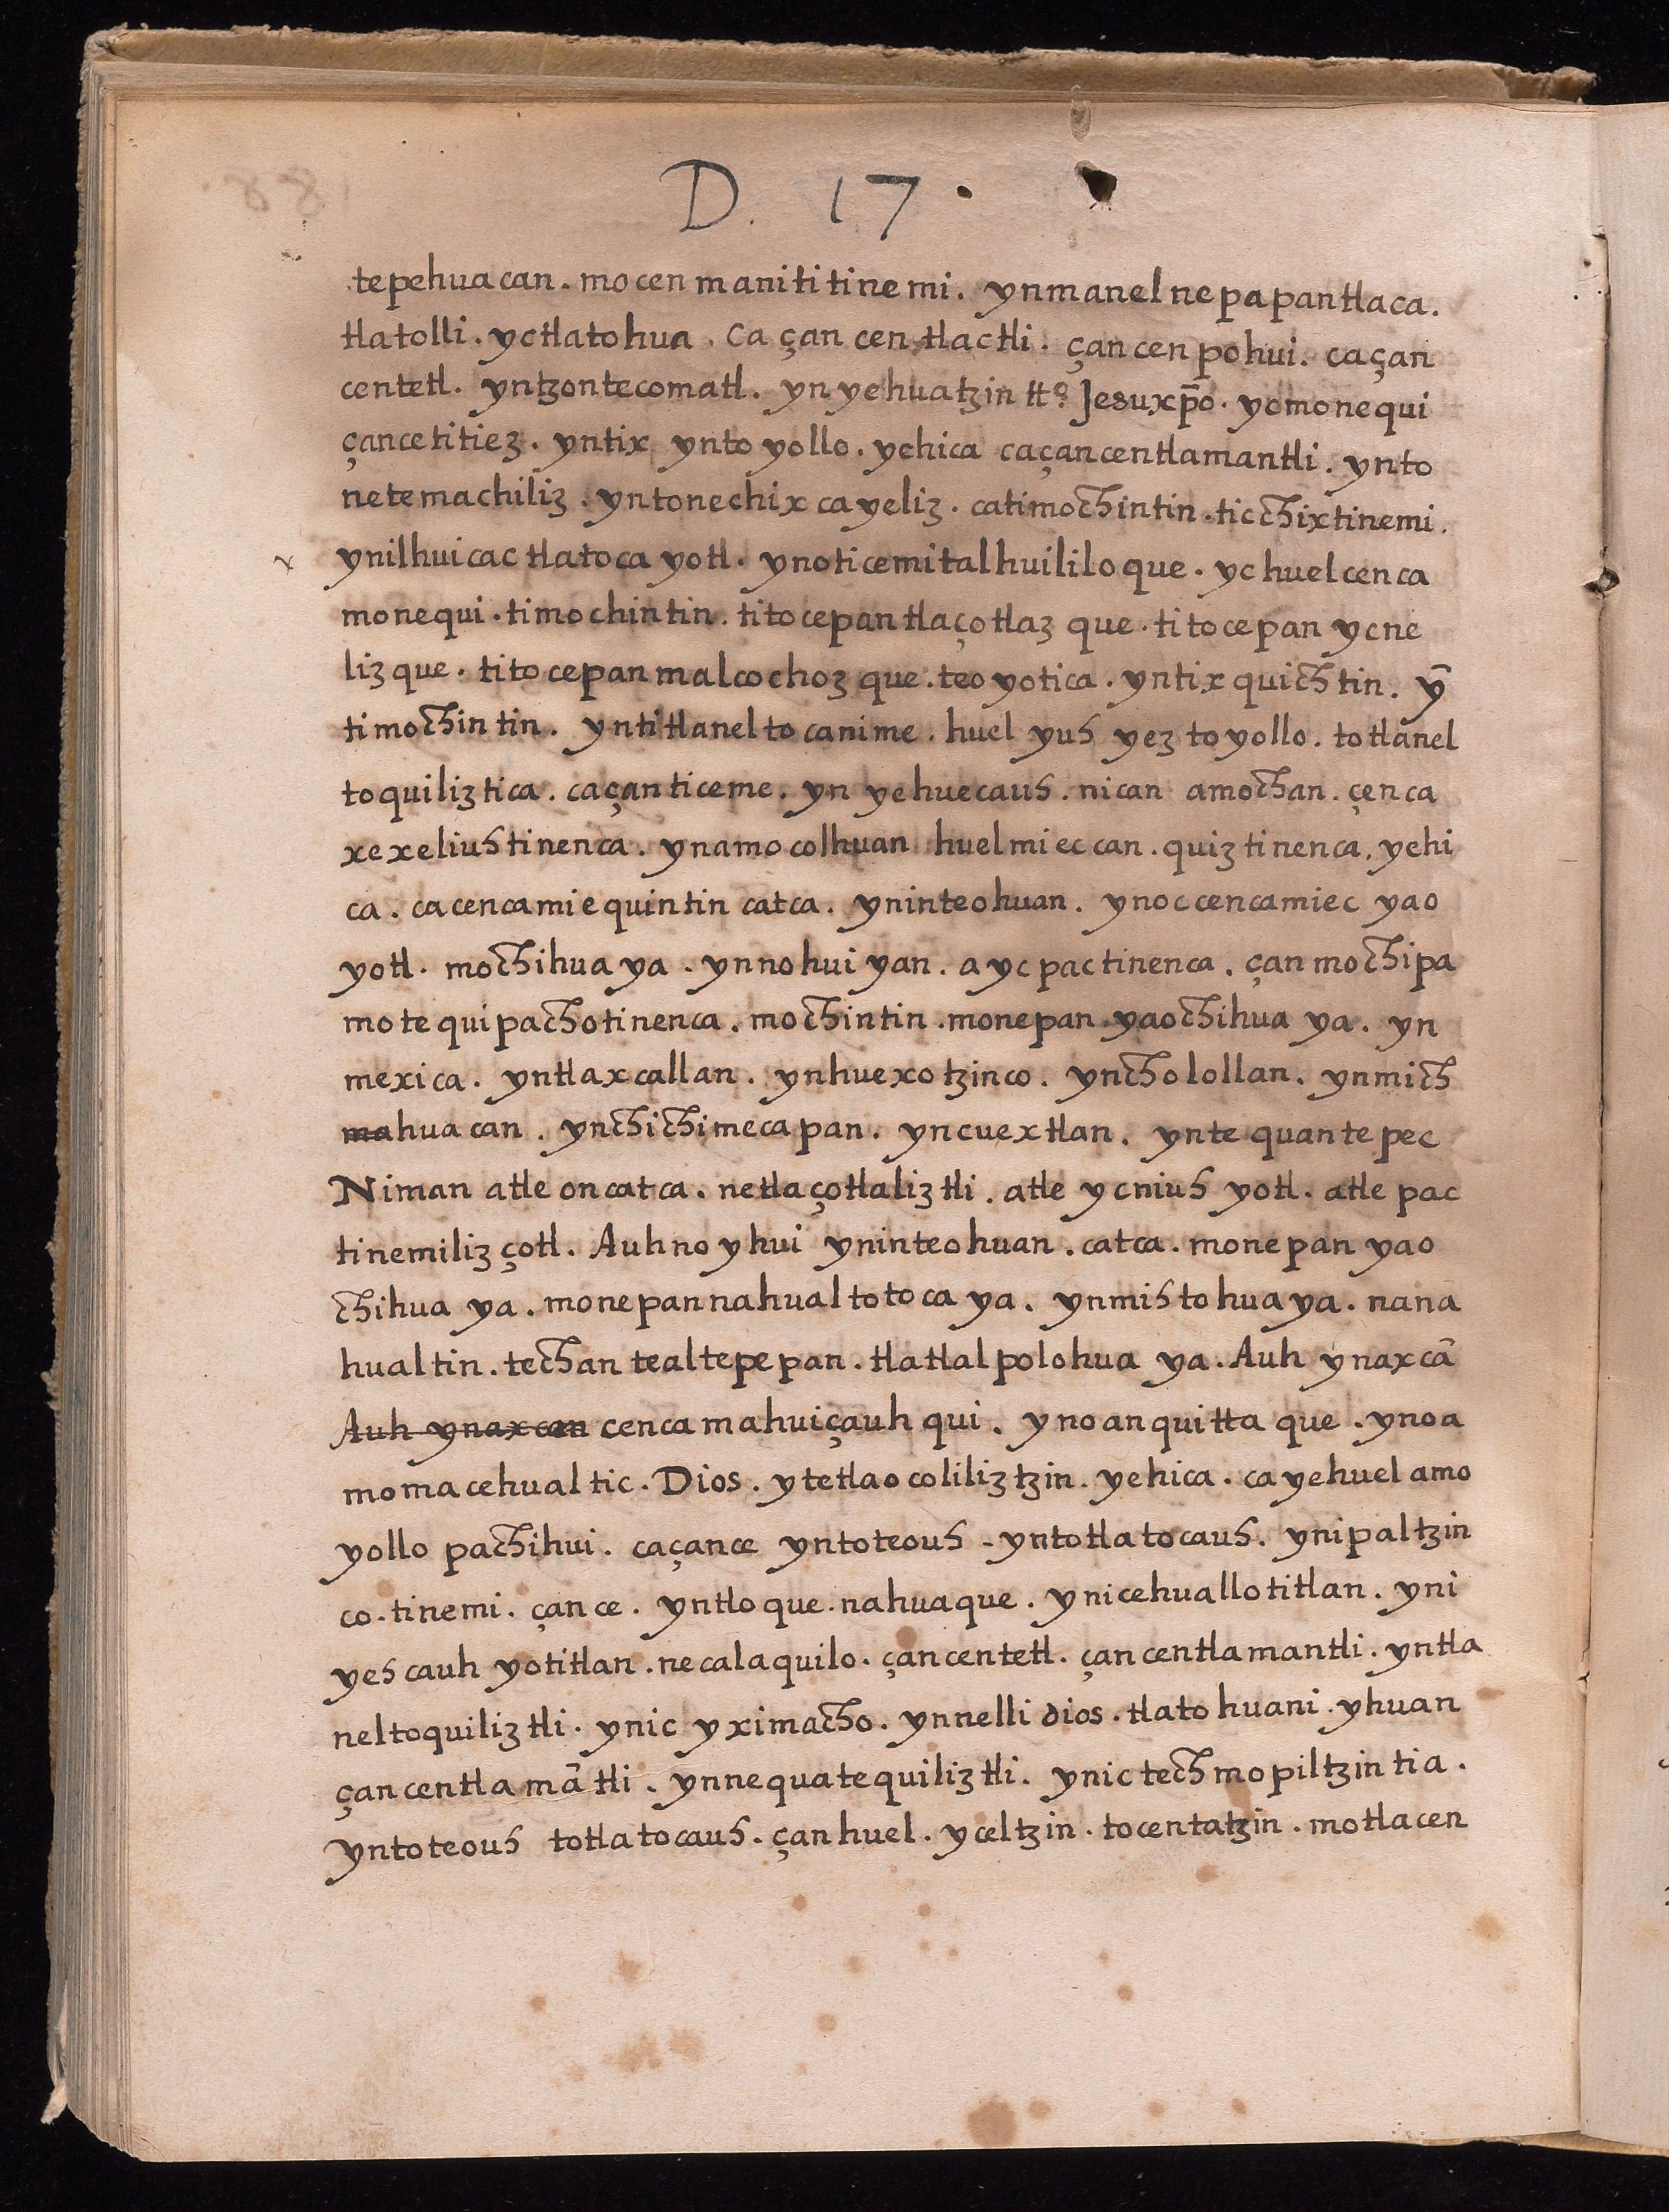 D. 17.
tepehuacan. mocenmanititinemi. ynmanelnepapantlaca.
tlatolli. yctlatohua. Ca çan cen tlactli. çan cen pohui. ca çan
centetl. yntzontecomatl. yn yehuatzin tto Jesuxp̄o. ycmonequi
çancetitiez. yntix ynto yollo. ychica caçancentlamantli. ynto
netemachiliz. yntonechixcayeliz. catimochintin. ticchixtinemi.
x ynilhuicac tlatocayotl. ynoticemitalhuililoque. yc huelcenca
monequi. timochintin. titocepantlaçotlazque. titocepan ycne
lizque. titocepanmalcochozque. teoyotica. yntixquichtin. ȳ
timochintin. yntitlaneltocanime. huel yuh yez toyollo. totlanel
toquiliztica. caçanticeme. yn yehuecauh. nican amochan. çenca
xexeliuhtinenca. ynamocolhuan huelmieccan. quiztinenca. yehi
ca. cacencamiequintin catca. yninteohuan. ynoccencamiec yao
yotl. mochihuaya. ynnohuiyan. aycpactinenca. çanmochipa
motequipachotinenca. mochintin. monepan yaochihuaya. yn
mexica. yntlaxcallan. ynhuexotzinco. yncholollan. ynmich
mahuacan. ynchichimecapan. yncuextlan. yntequantepec
Niman atle oncatca. netlaçotlaliztli. atle ycniuhyotl. atle pac
tinemilizçotl. Auhnoyhui yninteohuan. catca. monepan yao
chihuaya. monepannahualtotocaya. ynmihtohuaya. nana
hualtin. techan tealtepepan. tlatlalpolohuaya. Auh ynaxcā
Auh ynaxcan cenca mahuiçauhqui. ynoanquittaque. ynoa
momacehualtic. Dios. ytetlaocoliliztzin. yehica. ca yehuel amo
yollo pachihui. caçance yntoteouh - yntotlatocauh. ynipaltzin
co. tinemi. çance. yntloque. nahuaque. ynicehuallotitlan. yni
yehcauhyotitlan. necalaquilo. çancentetl. çancentlamantli. yntla
neltoquiliztli. ynic yximacho. ynnelli dios. tlatohuani. yhuan
çancentlamātli. ynnequatequiliztli. ynictechmopiltzintia.
yntoteouh totlatocauh. çanhuel. yceltzin. tocentatzin. motlacen